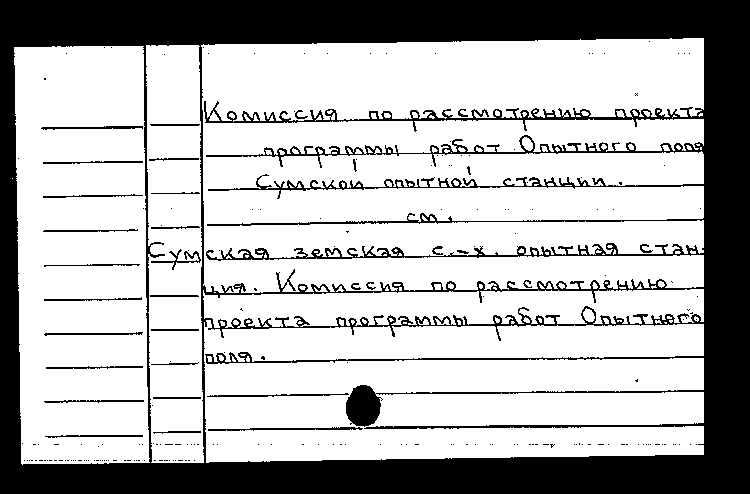 Комиссия по рассмотрению проекта
программы работ Опытного поля
Сумской опытной станции.
см.
Сумская земская с.-х. опытная стан-
ция. Комиссия по рассмотрению
проекта программы работ Опытного
поля.